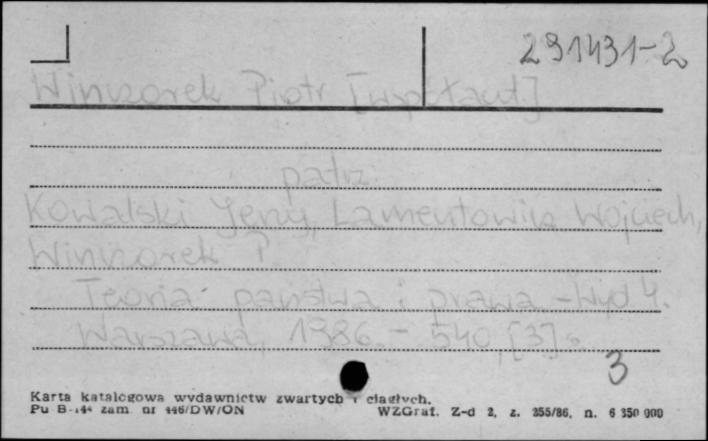 291431-2
Winczorek Piotr [współaut.]
patrz:
Kowalski Jerzy, Lamentowicz Wojciech,
Winczorek P.
Teoria państwa i prawa. - Wyd 4.
Warszawa, 1986. - 540, [3] s.
3
Karta katalogowa wydawnictw zwartych i ciągłych.
Pu B-144 zam. nr 446/DW/ON WZGraf. Z-d 2, z. 255/86, n. 6 350 000